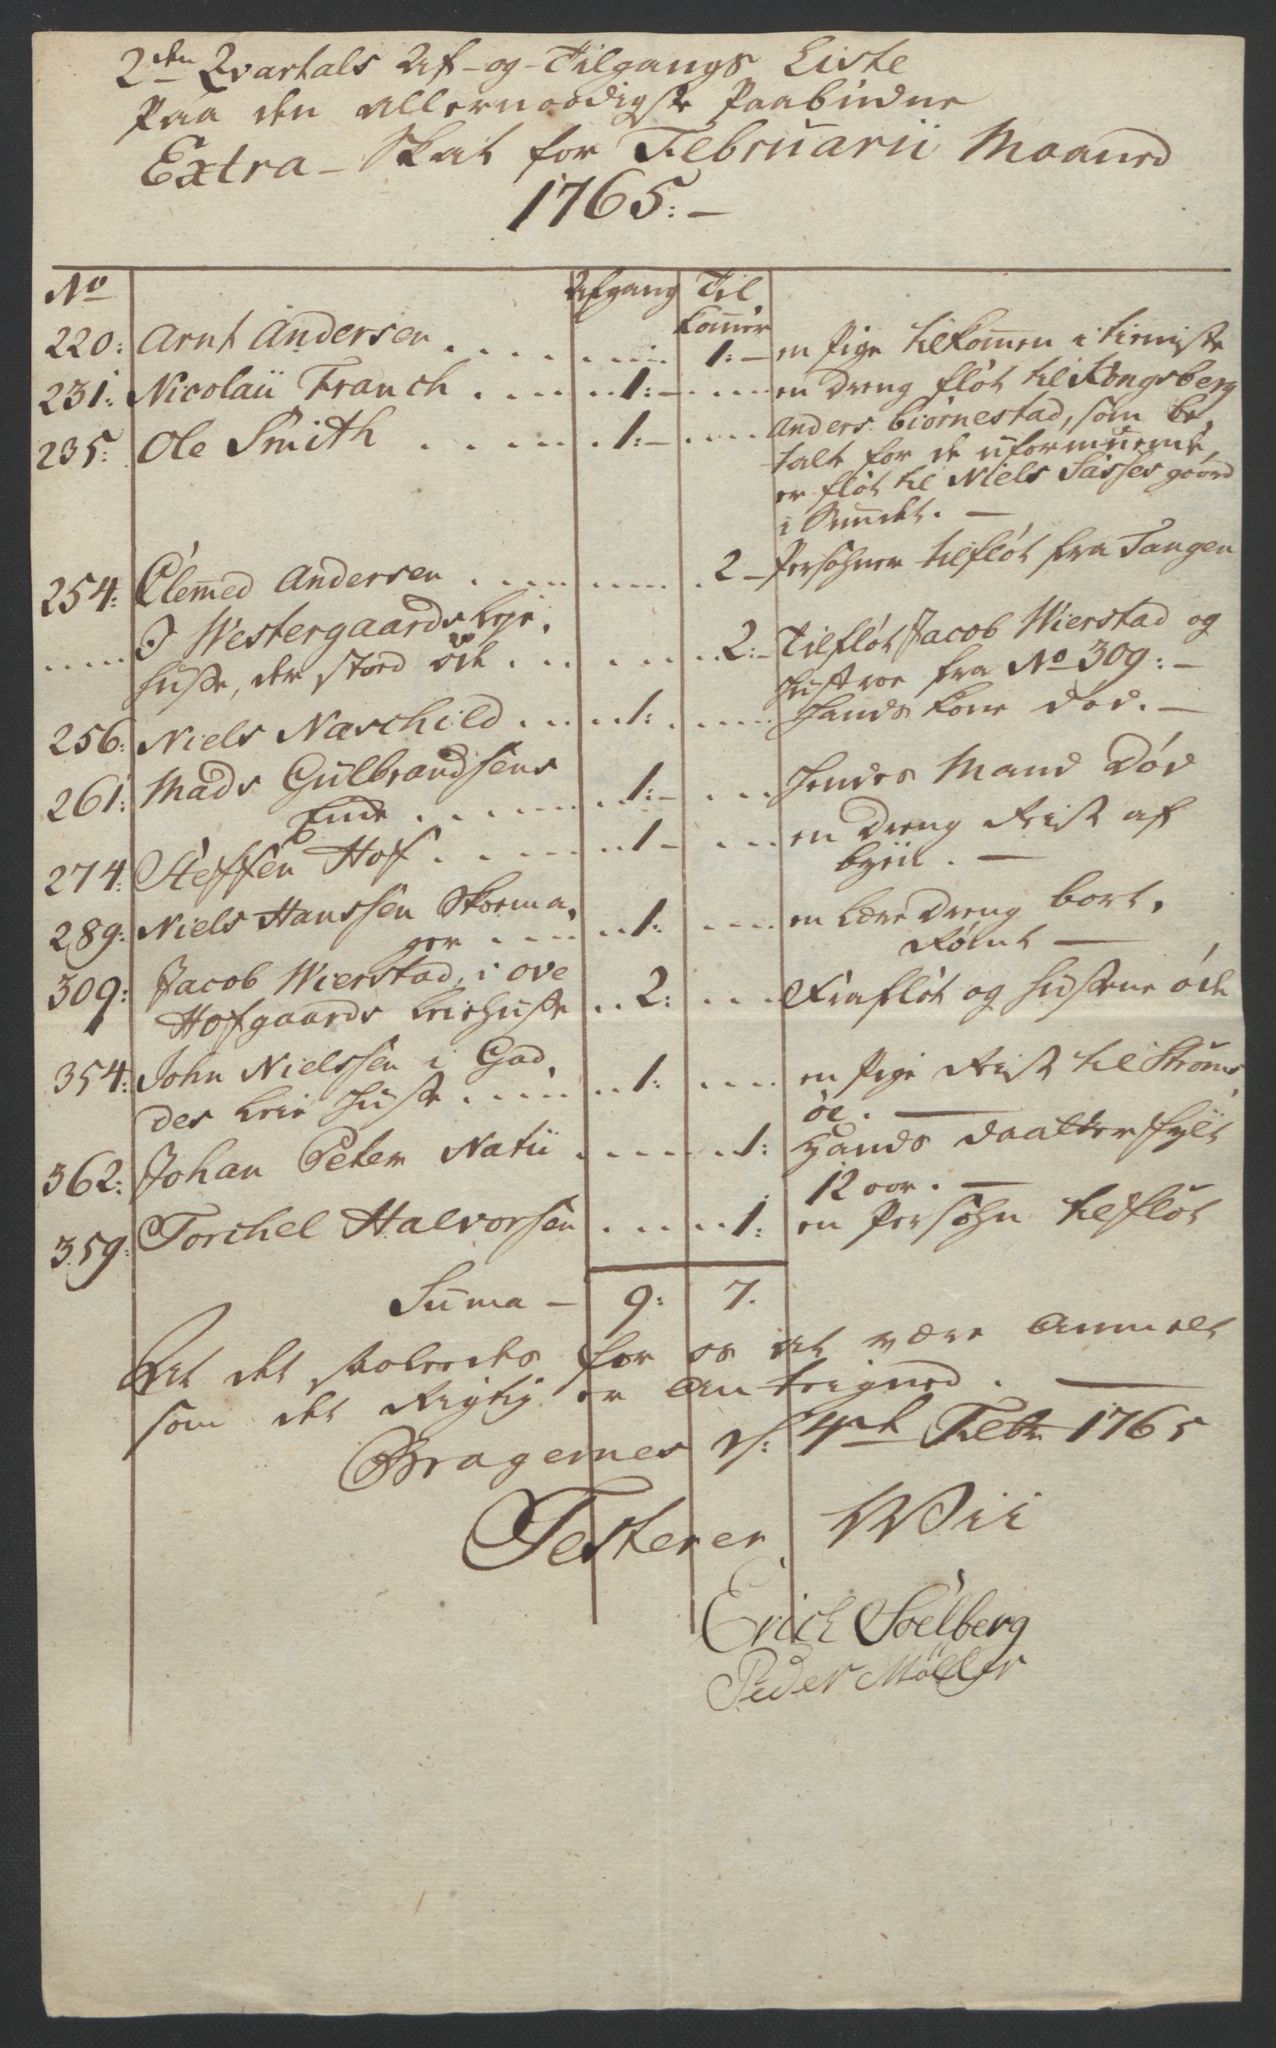 2den Qvartals Af-og-Tilgangs Liste
Paa den allernaadigste Paabudne
Extra-Skat for Februarii Maaned
1765:-
No Afgang Til
Kommer
220: Arnt Andersen . . . . 1:- en Pige tilkommen i tieniste
231: Nicolaii Franch . . . . 1:- . . . . en dreng fløt til Kongsberg
235: Ole Smith . . . . 1:- . . . . Anders Biørnestad, som be,
talt for de uformuende,
er fløt til Niels Sasses goård
i Sundet. -
254: Clemmed Andersen . . . . 2- Persohner tilfløt fra Tangen
. . . . I Westergaards Leje,
huse, der stod øde . . . . 2:- Tilfløt Jacob Wierstad og
hustroe fra No 309:-
256: Niels Naschild . . . . 1: . . . . Hands kone død. -
261: Mads Gulbrandsens
Enke . . . . 1:- . . . . Hendes Mand Død
274: Steffen Hof . . . . 1- . . . . en dreng Reist af
byen. -
289: Niels Hanssen Skoema,
ger . . . . 1: . . . . en læredreng bort,
Rømt -
309: Jacob Wierstad, i ove
Hofgaards leiehuse . . 2: . . . . Frafløt og husene øde
354: John Nielssen i Gad,
des leie huse . . . . 1: . . . . en Pige Reist til Strøms,
øe. -
362: Johan Peter Natii . . . . 1: Hands daatter fylt
12 aar. -
359: Torchel Halvorsen . . . . 1: en Persohn tilfløt
Suma - 9: 7.
At det saaledes for os at være Anmelt
som det Rigtig er Anteigned. -
Bragernes d: 4de Febr 1765
Testerer Wii
Erich Soelberg
Peder Møller